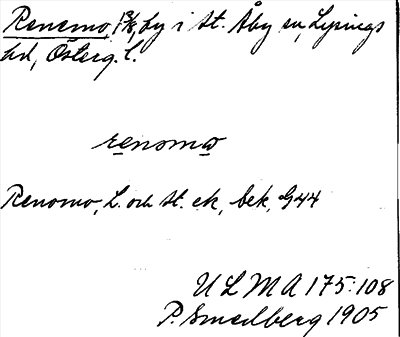 Renomo, by i St. Åby sn, Lysings
hd, Österg. l.
renomω
Renomo, L. och St. ek, bek, G44
ULMA 175:108
P. Smedberg 1905